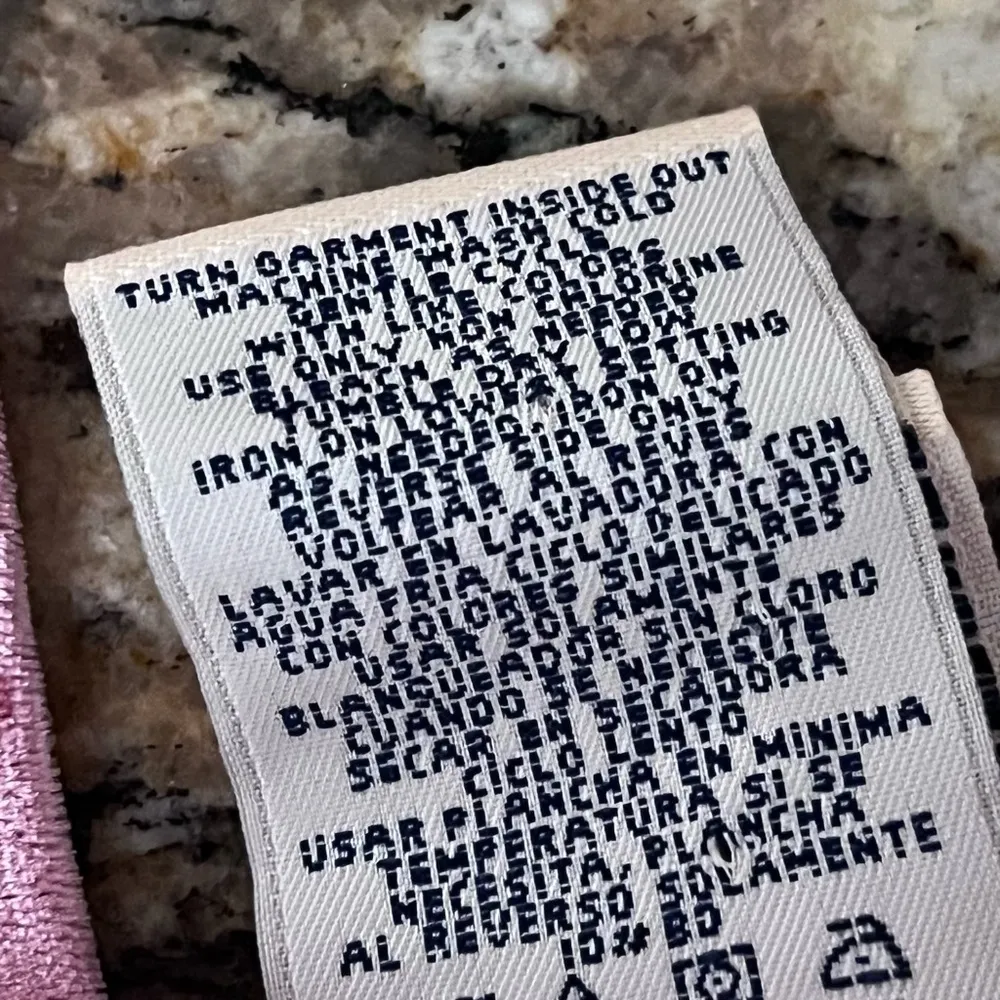 TURN GARMENT INSIDE OUT
MACHINE WASH COLD
GENTLE CYCLE
WITH LIKE COLORS
USE ONLY NON CHLORINE
BLEACH AS NEEDED
TUMBLE DRY LOW
IRON ON LOWEST SETTING
AS NEEDED, IRON ON
REVERSE SIDE ONLY
VOLTEAR AL REVES
LAVAR EN LAVADORA CON
AGUA FRIA CICLO DELICADO
CON COLORES SIMILARES
USAR SOLAMENTE
BLANQUEADOR SIN CLORO
CUANDO SE NECESITE
SECAR EN SECADORA
CICLO LENTO
USAR PLANCHA EN MINIMA
TEMPERATURA SI SE
NECESITA, PLANCHA
AL REVERSO SOLAMENTE
ID# BO